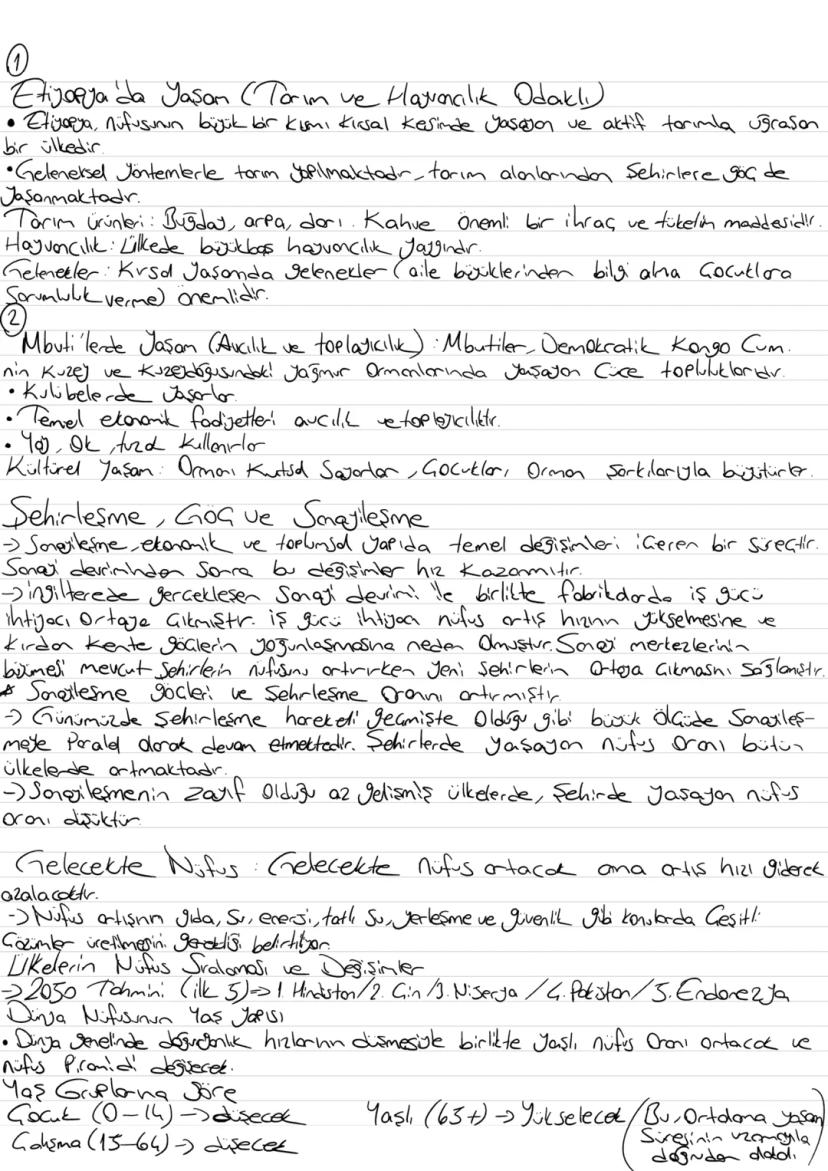 1
Etiyopya'da Yaşam (Tarım ve Hayvancılık Odaklı)
• Etiyopya, nüfusunun büyük bir kısmı kırsal kesimde yaşayan ve aktif tarımla uğraşan
bir ülkedir.
• Geleneksel yöntemlerle tarım yapılmaktadır, tarım alanlarından şehirlere göç de
yaşanmaktadır.
Tarım ürünleri: Buğday, arpa, darı. Kahve önemli bir ihraç ve tüketim maddesidir.
Hayvancılık: Ülkede büyükbaş hayvancılık yaygındır.
Gelenekler: Kırsal yaşamda gelenekler (aile büyüklerinden bilgi alma çocuklara
sorumluluk verme) önemlidir.
2
Mbuti'lerde Yaşam (Avcılık ve toplayıcılık): Mbutiler, Demokratik Kongo Cum.
nin kuzey ve kuzeydoğusundaki yağmur ormanlarında yaşayan cüce topluluklardır.
• Kulübelerde yaşarlar.
• Temel ekonomik faaliyetleri avcılık ve toplayıcılıktır.
• Yay, Ok, tuzak kullanırlar
Kültürel Yaşam: Ormanı kutsal sayarlar, çocukları orman şarkılarıyla büyütürler.
Şehirleşme, Göç ve Sanayileşme
→ Sanayileşme, ekonomik ve toplumsal yapıda temel değişimleri içeren bir süreçtir.
Sanayi devriminden sonra bu değişimler hız kazanmıştır.
→ ingilterede gerçekleşen Sanayi devrimi ile birlikte fabrikalarda iş gücü
ihtiyacı ortaya çıkmıştır. iş gücü ihtiyacı nüfus artış hızının yükselmesine ve
kırdan kente göçlerin yoğunlaşmasına neden olmuştur. Sanayi merkezlerinin
büyümesi mevcut şehirlerin nüfusunu artırırken yeni şehirlerin ortaya çıkmasını sağlamıştır.
* Sanayileşme göçleri ve şehirleşme oranını artırmıştır
→ Günümüzde şehirleşme hareketi geçmişte olduğu gibi büyük ölçüde sanayileş-
meye paralel olarak devam etmektedir. Şehirlerde yaşayan nüfus oranı bütün
ülkelerde artmaktadır.
→ Sanayileşmenin zayıf olduğu az gelişmiş ülkelerde, şehirde yaşayan nüfus
oranı düşüktür
Gelecekte Nüfus: Gelecekte nüfus artacak ama artış hızı giderek
azalacaktır.
→ Nüfus artışının gıda, su, enerji, tatlı su, yerleşme ve güvenlik gibi konularda çeşitli
çözümler üretilmesini gerektiği belirtiliyor
Ülkelerin Nüfus Sıralaması ve Değişimler
→ 2050 Tahmini (ilk 5) ⇒ 1. Hindistan / 2. Çin / 3. Nijerya / 4. Pakistan / 5. Endonezya
Dünya Nüfusunun Yaş Yapısı
• Dünya genelinde doğurganlık hızlarının düşmesiyle birlikte yaşlı nüfus oranı artacak ve
nüfus piramidi değişecek.
Yaş Gruplarına Göre
Çocuk (0-14) → düşecek Yaşlı (65+) → Yükselecek (Bu, ortalama yaşam
Çalışma (15-64) → düşecek süresinin uzamasıyla
doğrudan alakalı)